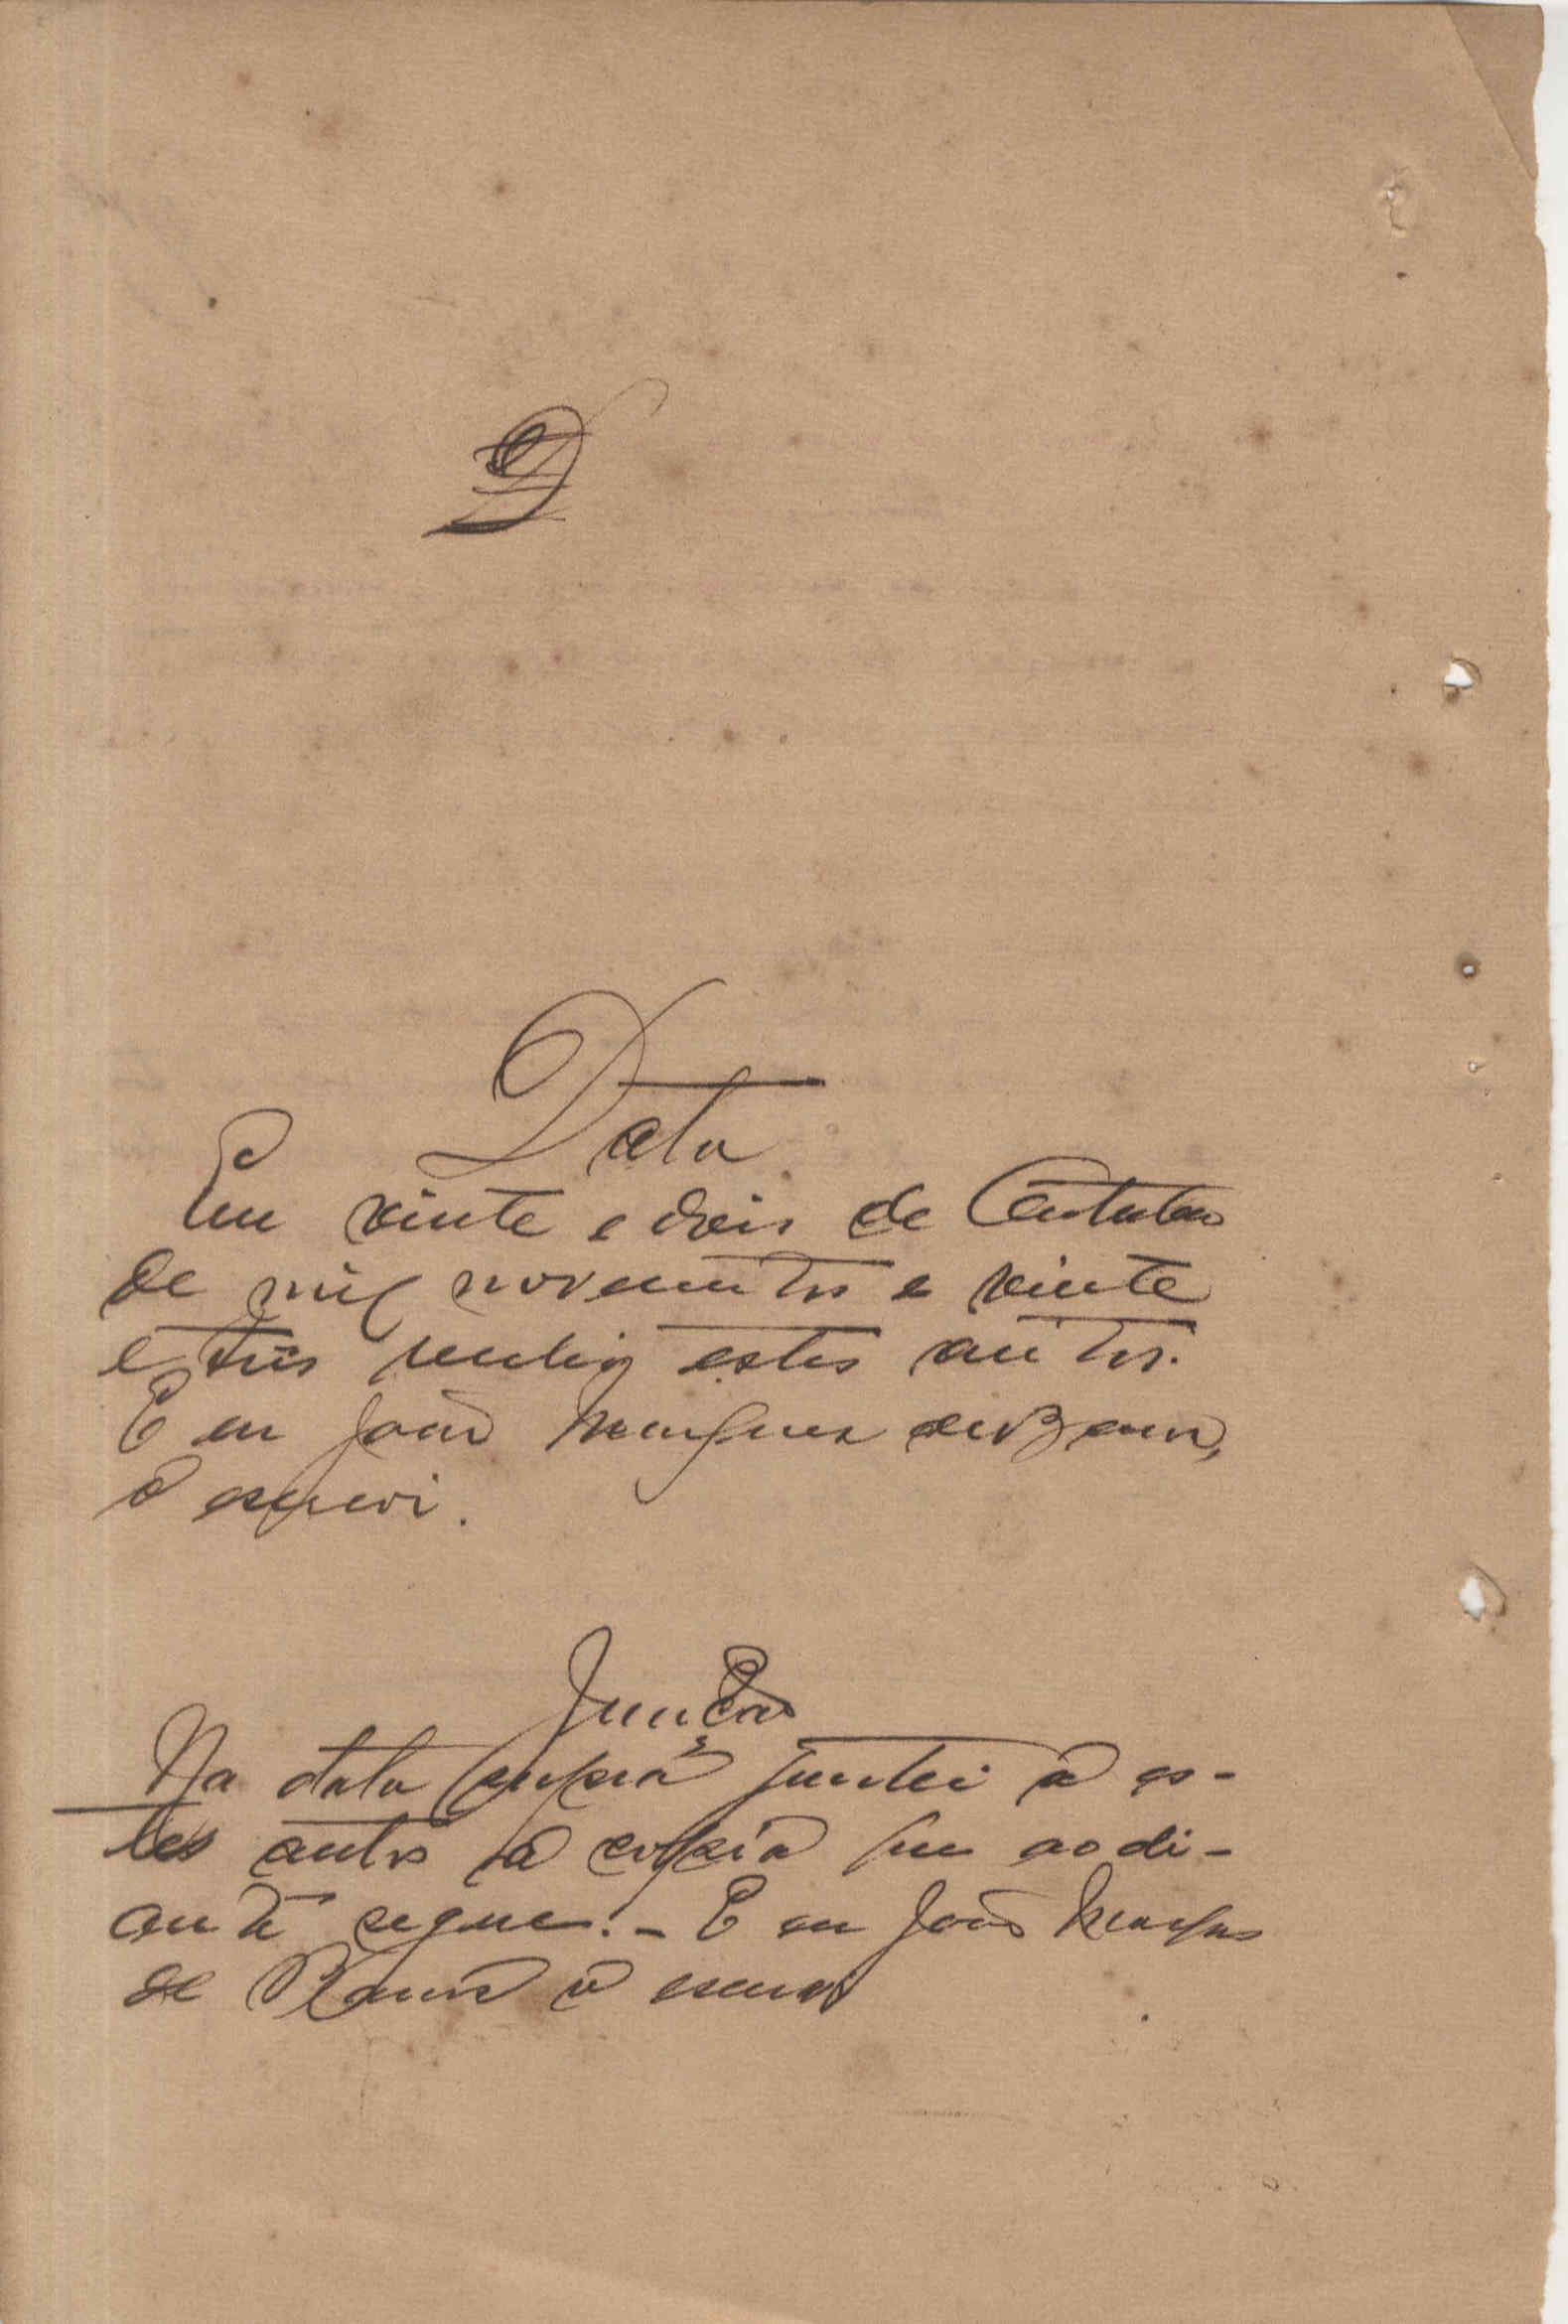 D
Data
Em vinte e dois de Outubro
de mil novecentos e vinte
e tres recebi estes autos.
E eu João Marques de
o escrevi.
Juncção
Na data supra juntei a es-
tes autos a copia que ao di-
ante segue. - E eu João Marques
de o escrevi